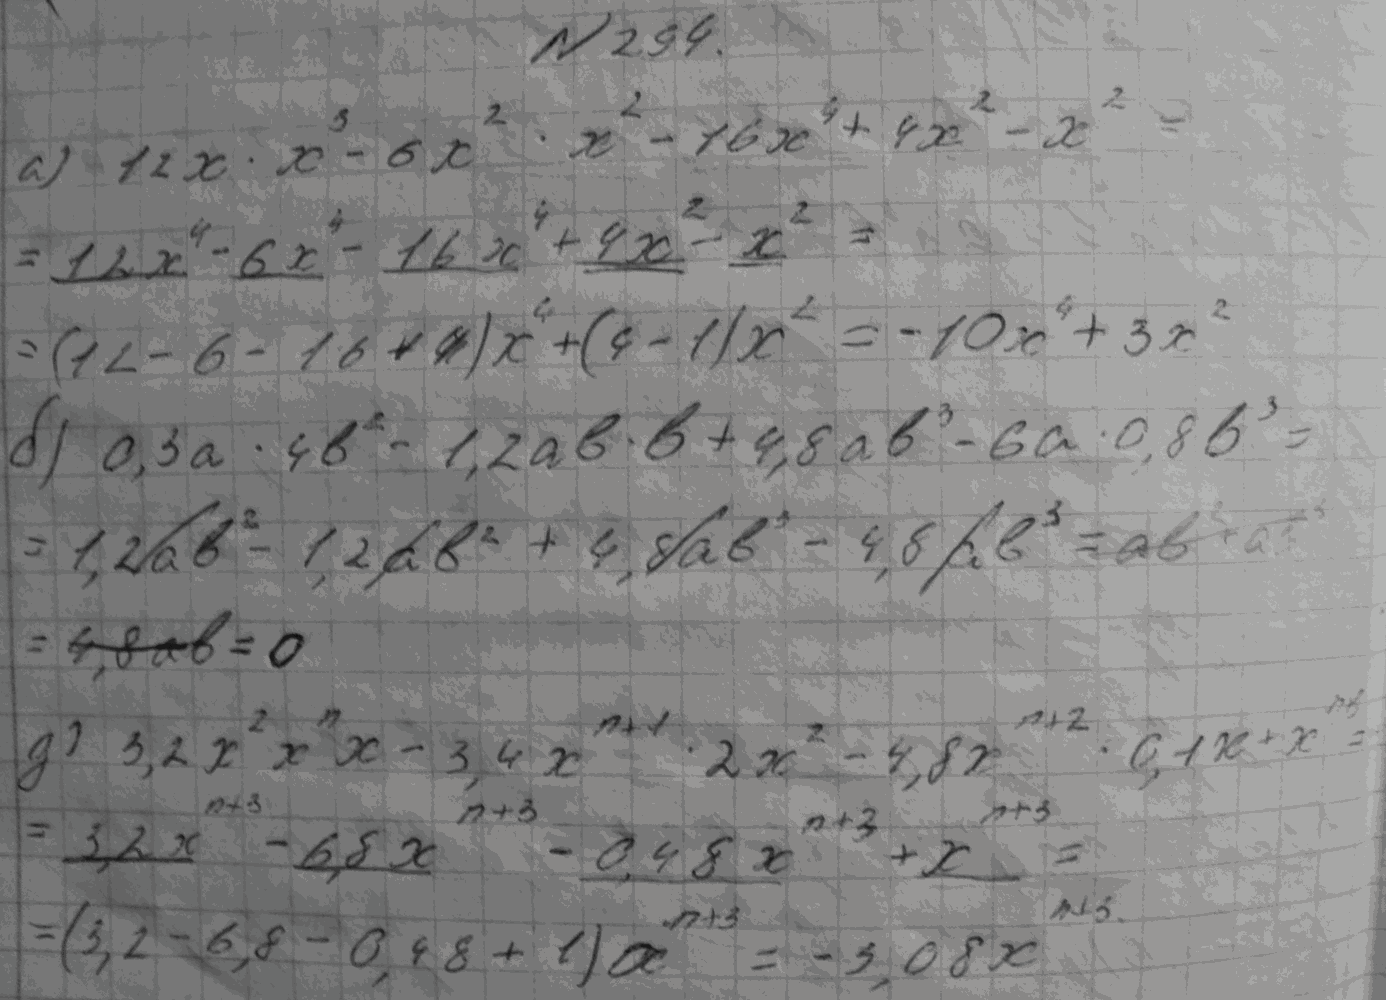 N 294.
а) 12x · x³ - 6x² · x² - 16x⁴ + 4x² - x² =
= 12x⁴ - 6x⁴ - 16x⁴ + 4x² - x² =
= (12 - 6 - 16) x⁴ + (4 - 1) x² = -10x⁴ + 3x²
б) 0,3a · 4b² - 1,2ab · b + 4,8ab³ - 6a · 0,8b³ =
= 1,2ab² - 1,2ab² + 4,8ab³ - 4,8ab³ =
= 4,8ab = 0
д) 3,2x²xⁿx - 3,4xⁿ⁺¹ · 2x² - 4,8xⁿ⁺² · 0,1x + xⁿ⁺³ =
= 3,2xⁿ⁺³ - 6,8xⁿ⁺³ - 0,48xⁿ⁺³ + xⁿ⁺³ =
= (3,2 - 6,8 - 0,48 + 1) xⁿ⁺³ = -3,08xⁿ⁺³